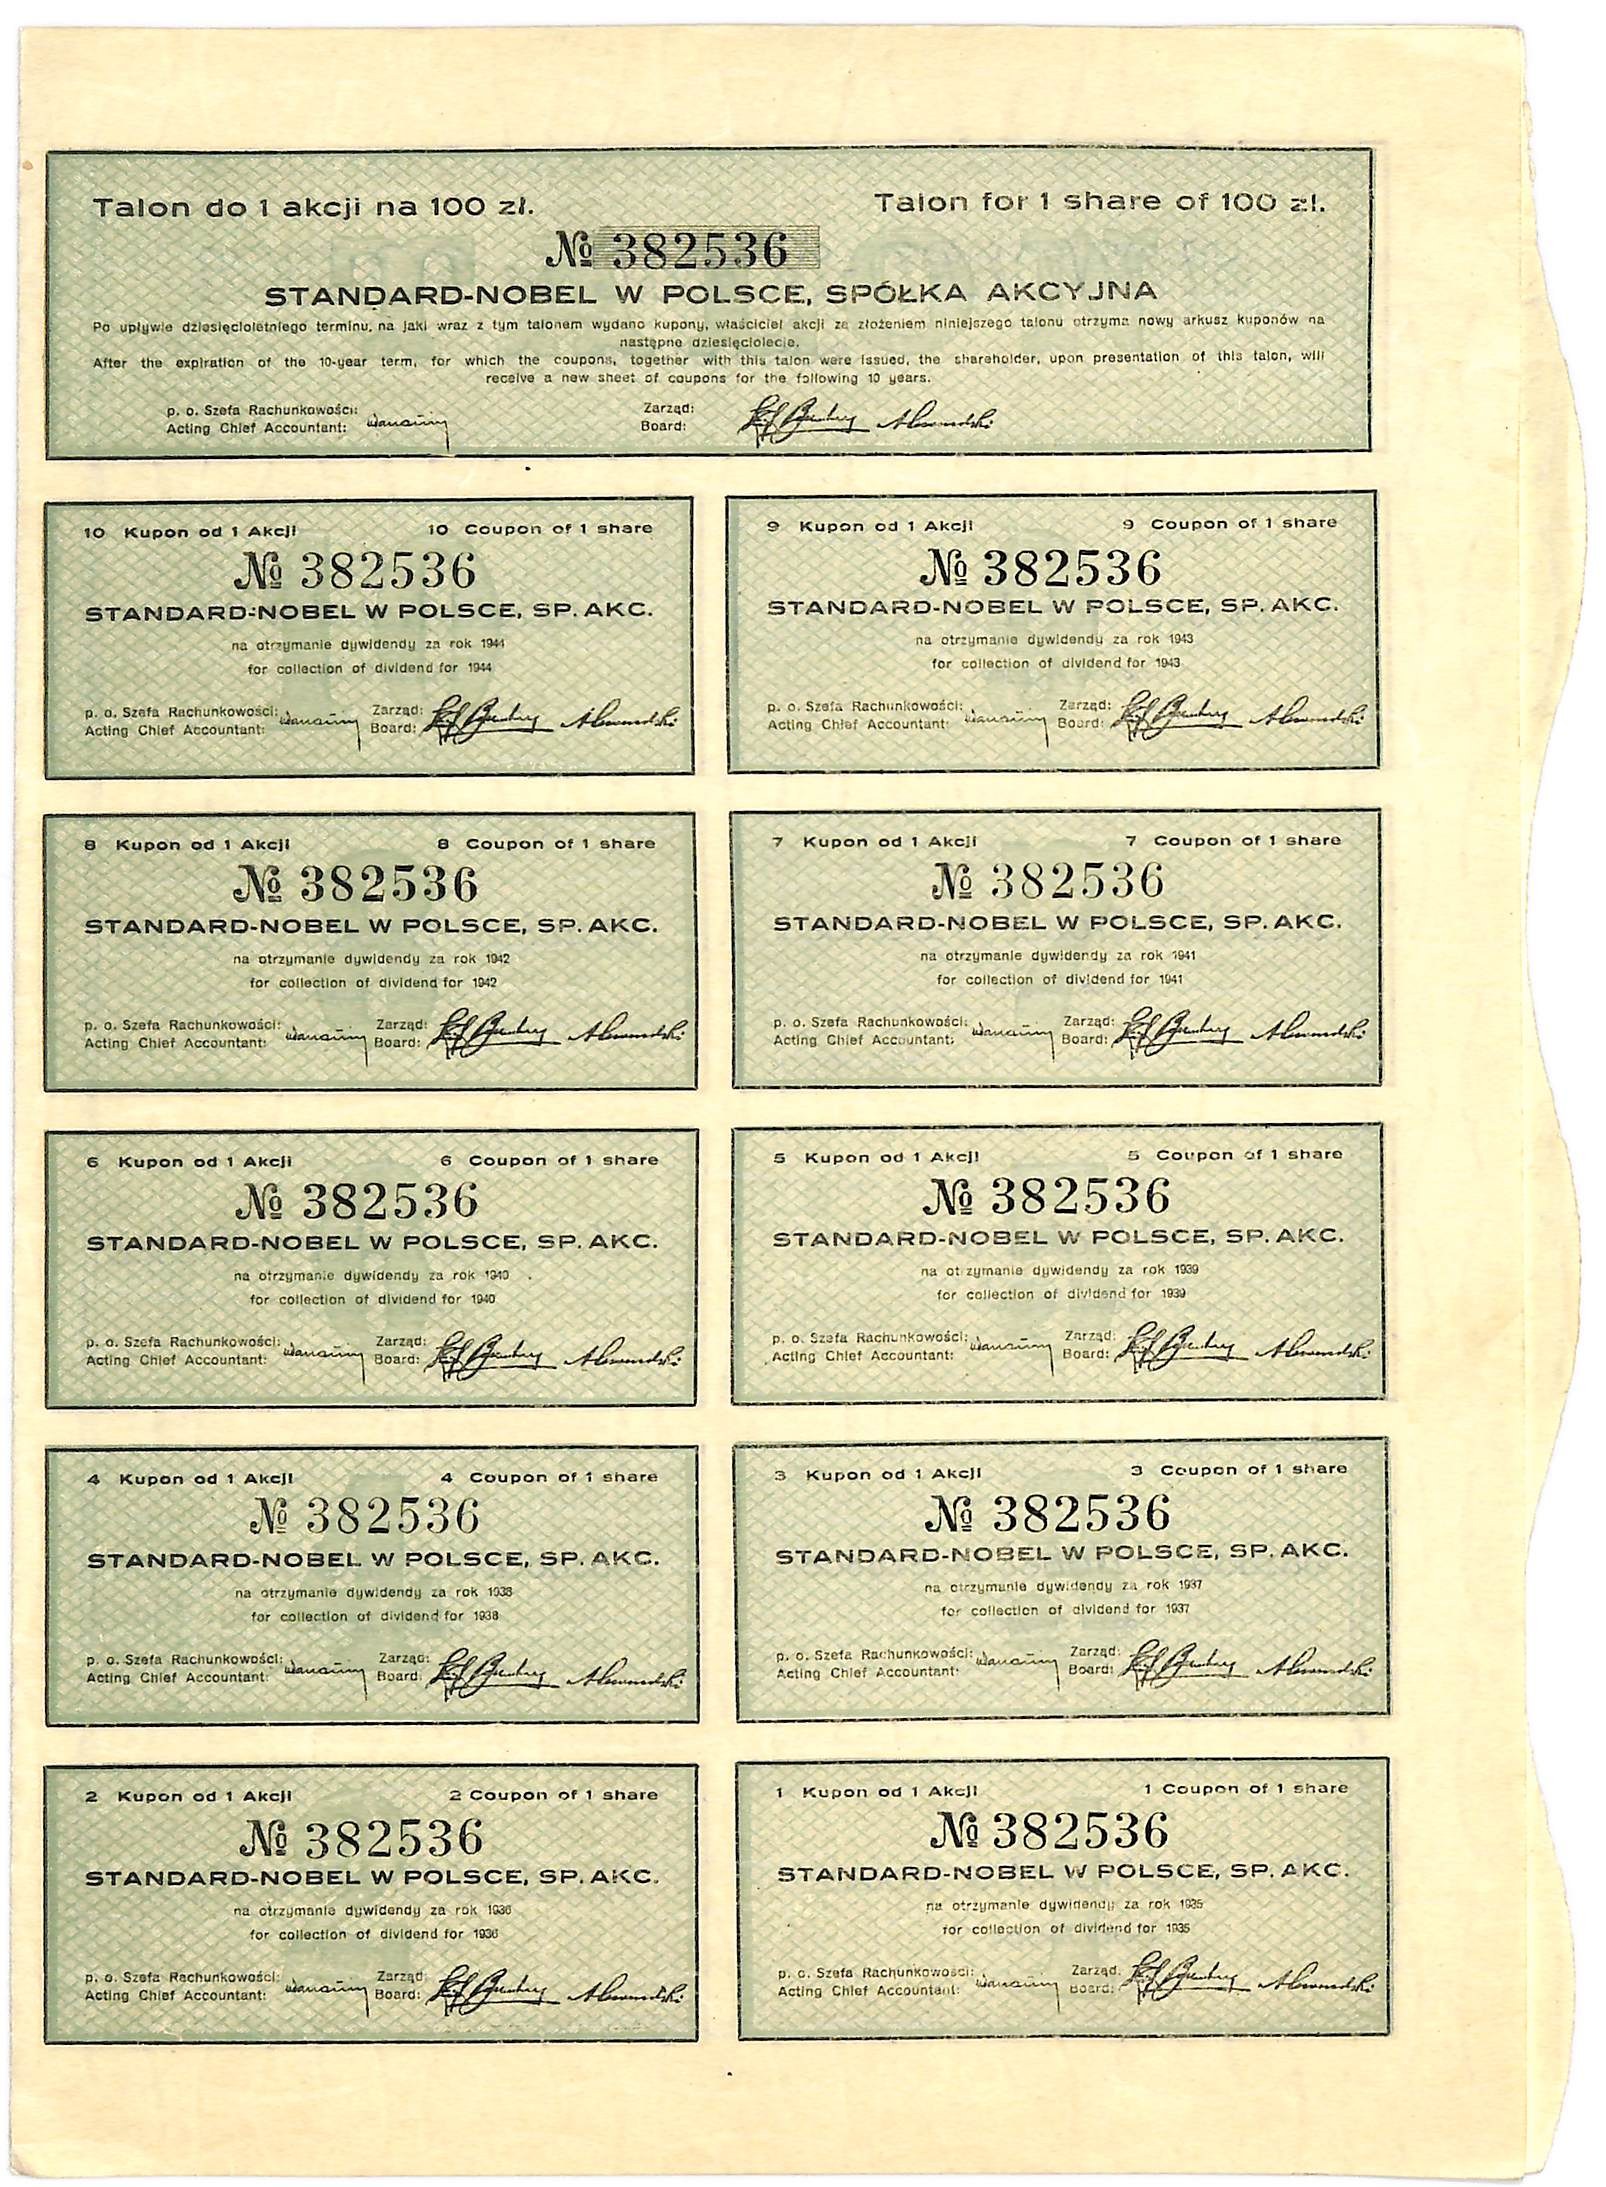 Talon do 1 akcji na 100 zł.
Talon for 1 share of 100 zł.
№ 382536
STANDARD-NOBEL W POLSCE, SPÓŁKA AKCYJNA
Po upływie dziesięcioletniego terminu, na jaki wraz z tym talonem wydano kupony, właściciel akcji za złożeniem niniejszego talonu otrzyma nowy arkusz kuponów na
następne dziesięciolecie.
After the expiration of the 10-year term, for which the coupons, together with this talon were issued, the shareholder, upon presentation of this talon, will
receive a new sheet of coupons for the following 10 years.
p. o. Szefa Rachunkowości: Zarząd:
Acting Chief Accountant: Board:
10 Kupon od 1 Akcji 10 Coupon of 1 share
№ 382536
STANDARD-NOBEL W POLSCE, SP. AKC.
na otrzymanie dywidendy za rok 1944
for collection of dividend for 1944
p. o. Szefa Rachunkowości: Zarząd:
Acting Chief Accountant: Board:
9 Kupon od 1 Akcji 9 Coupon of 1 share
№ 382536
STANDARD-NOBEL W POLSCE, SP. AKC.
na otrzymanie dywidendy za rok 1943
for collection of dividend for 1943
p. o. Szefa Rachunkowości: Zarząd:
Acting Chief Accountant: Board:
8 Kupon od 1 Akcji 8 Coupon of 1 share
№ 382536
STANDARD-NOBEL W POLSCE, SP. AKC.
na otrzymanie dywidendy za rok 1942
for collection of dividend for 1942
p. o. Szefa Rachunkowości: Zarząd:
Acting Chief Accountant: Board:
7 Kupon od 1 Akcji 7 Coupon of 1 share
№ 382536
STANDARD-NOBEL W POLSCE, SP. AKC.
na otrzymanie dywidendy za rok 1941
for collection of dividend for 1941
p. o. Szefa Rachunkowości: Zarząd:
Acting Chief Accountant: Board:
6 Kupon od 1 Akcji 6 Coupon of 1 share
№ 382536
STANDARD-NOBEL W POLSCE, SP. AKC.
na otrzymanie dywidendy za rok 1940
for collection of dividend for 1940
p. o. Szefa Rachunkowości: Zarząd:
Acting Chief Accountant: Board:
5 Kupon od 1 Akcji 5 Coupon of 1 share
№ 382536
STANDARD-NOBEL W POLSCE, SP. AKC.
na otrzymanie dywidendy za rok 1939
for collection of dividend for 1939
p. o. Szefa Rachunkowości: Zarząd:
Acting Chief Accountant: Board:
4 Kupon od 1 Akcji 4 Coupon of 1 share
№ 382536
STANDARD-NOBEL W POLSCE, SP. AKC.
na otrzymanie dywidendy za rok 1938
for collection of dividend for 1938
p. o. Szefa Rachunkowości: Zarząd:
Acting Chief Accountant: Board:
3 Kupon od 1 Akcji 3 Coupon of 1 share
№ 382536
STANDARD-NOBEL W POLSCE, SP. AKC.
na otrzymanie dywidendy za rok 1937
for collection of dividend for 1937
p. o. Szefa Rachunkowości: Zarząd:
Acting Chief Accountant: Board:
2 Kupon od 1 Akcji 2 Coupon of 1 share
№ 382536
STANDARD-NOBEL W POLSCE, SP. AKC.
na otrzymanie dywidendy za rok 1936
for collection of dividend for 1936
p. o. Szefa Rachunkowości: Zarząd:
Acting Chief Accountant: Board:
1 Kupon od 1 Akcji 1 Coupon of 1 share
№ 382536
STANDARD-NOBEL W POLSCE, SP. AKC.
na otrzymanie dywidendy za rok 1935
for collection of dividend for 1935
p. o. Szefa Rachunkowości: Zarząd:
Acting Chief Accountant: Board: